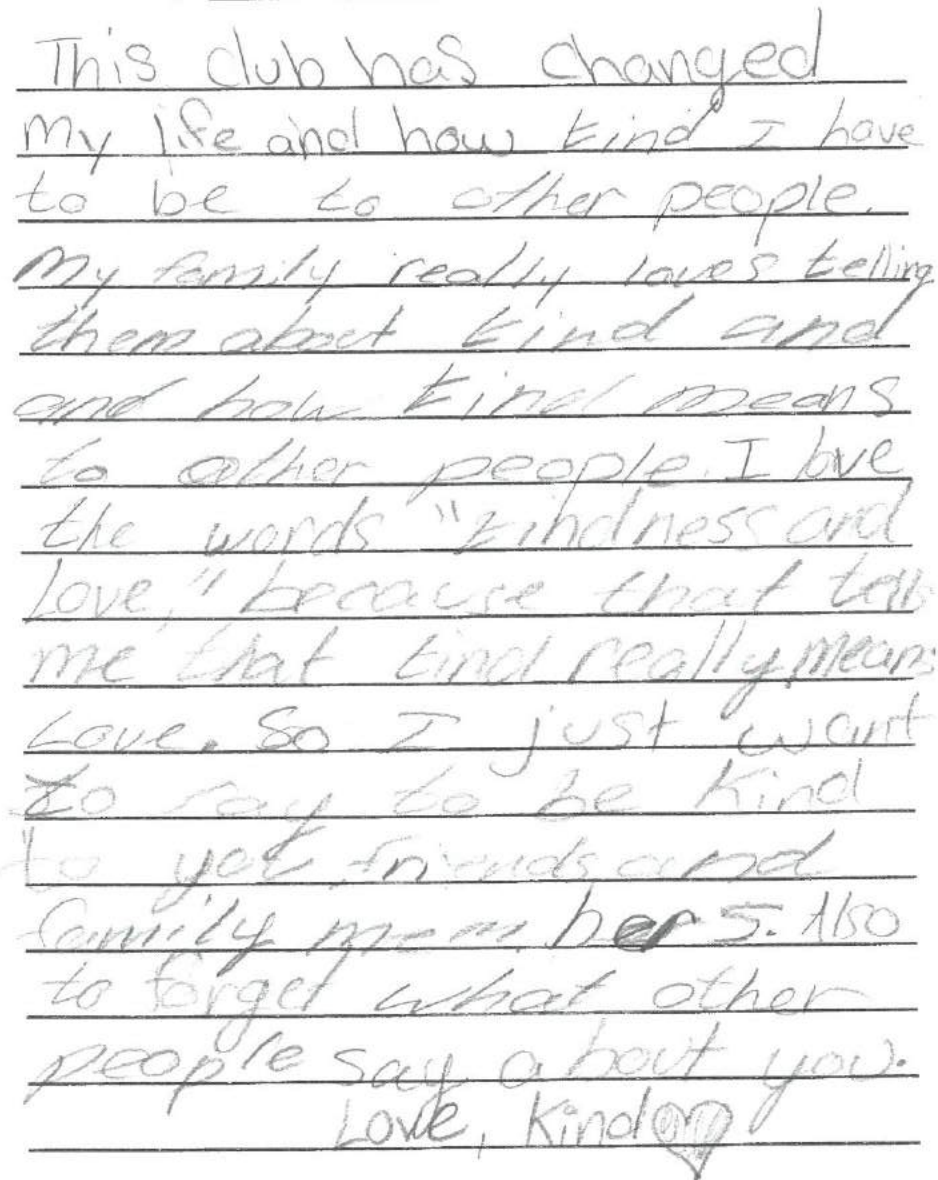 This club has changed
My life and how kind I have
to be to other people.
My family really loves telling
them about kind and
and how kind means
to other people. I love
the words "kindness and
Love," because that tells
me that kind really means
Love. So I just want
to say to be kind
to you friends and
family members. Also
to forget what other
people say about you.
Love, Kind